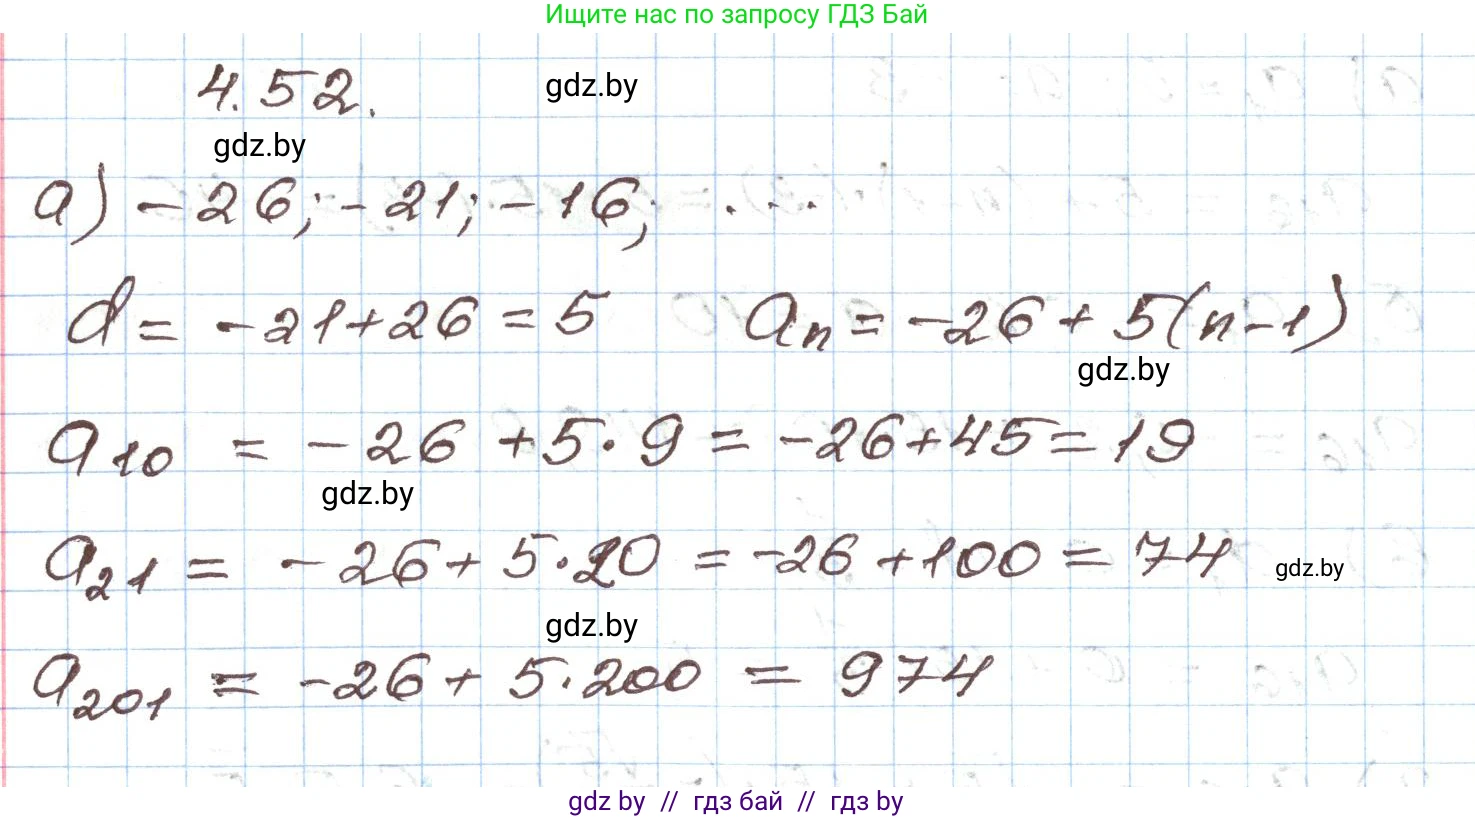 Ищите нас по запросу ГДЗ Бай
4.52.
gdz.by
gdz.by
а) -26; -21; -16; ...
d = -21+26 = 5 aₙ = -26 + 5(n-1)
gdz.by
a₁₀ = -26 + 5·9 = -26+45 = 19
gdz.by
a₂₁ = -26 + 5·20 = -26 + 100 = 74
gdz.by
gdz.by
a₂₀₁ = -26 + 5·200 = 974
gdz by // гдз бай // гдз by